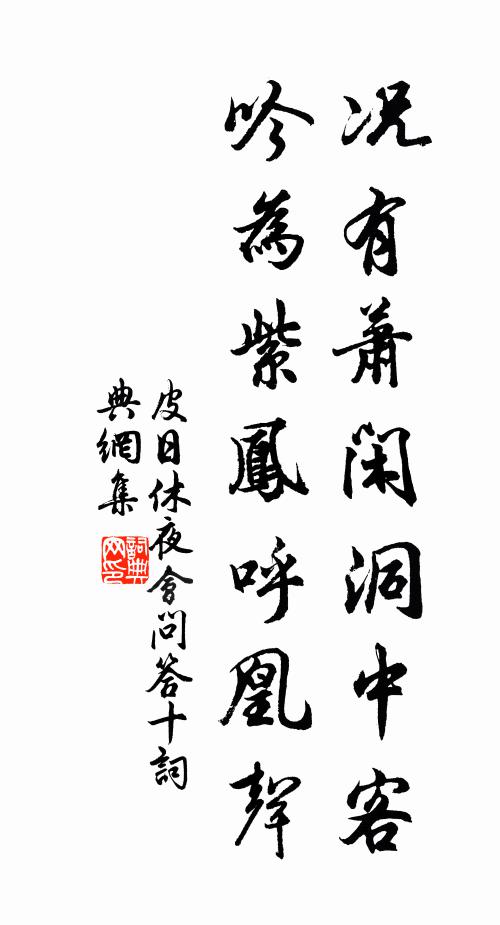 况有蕭閑洞中客
吟為紫鳳呼凰聲
皮日休夜會問答十詞
典網集
詞典網印